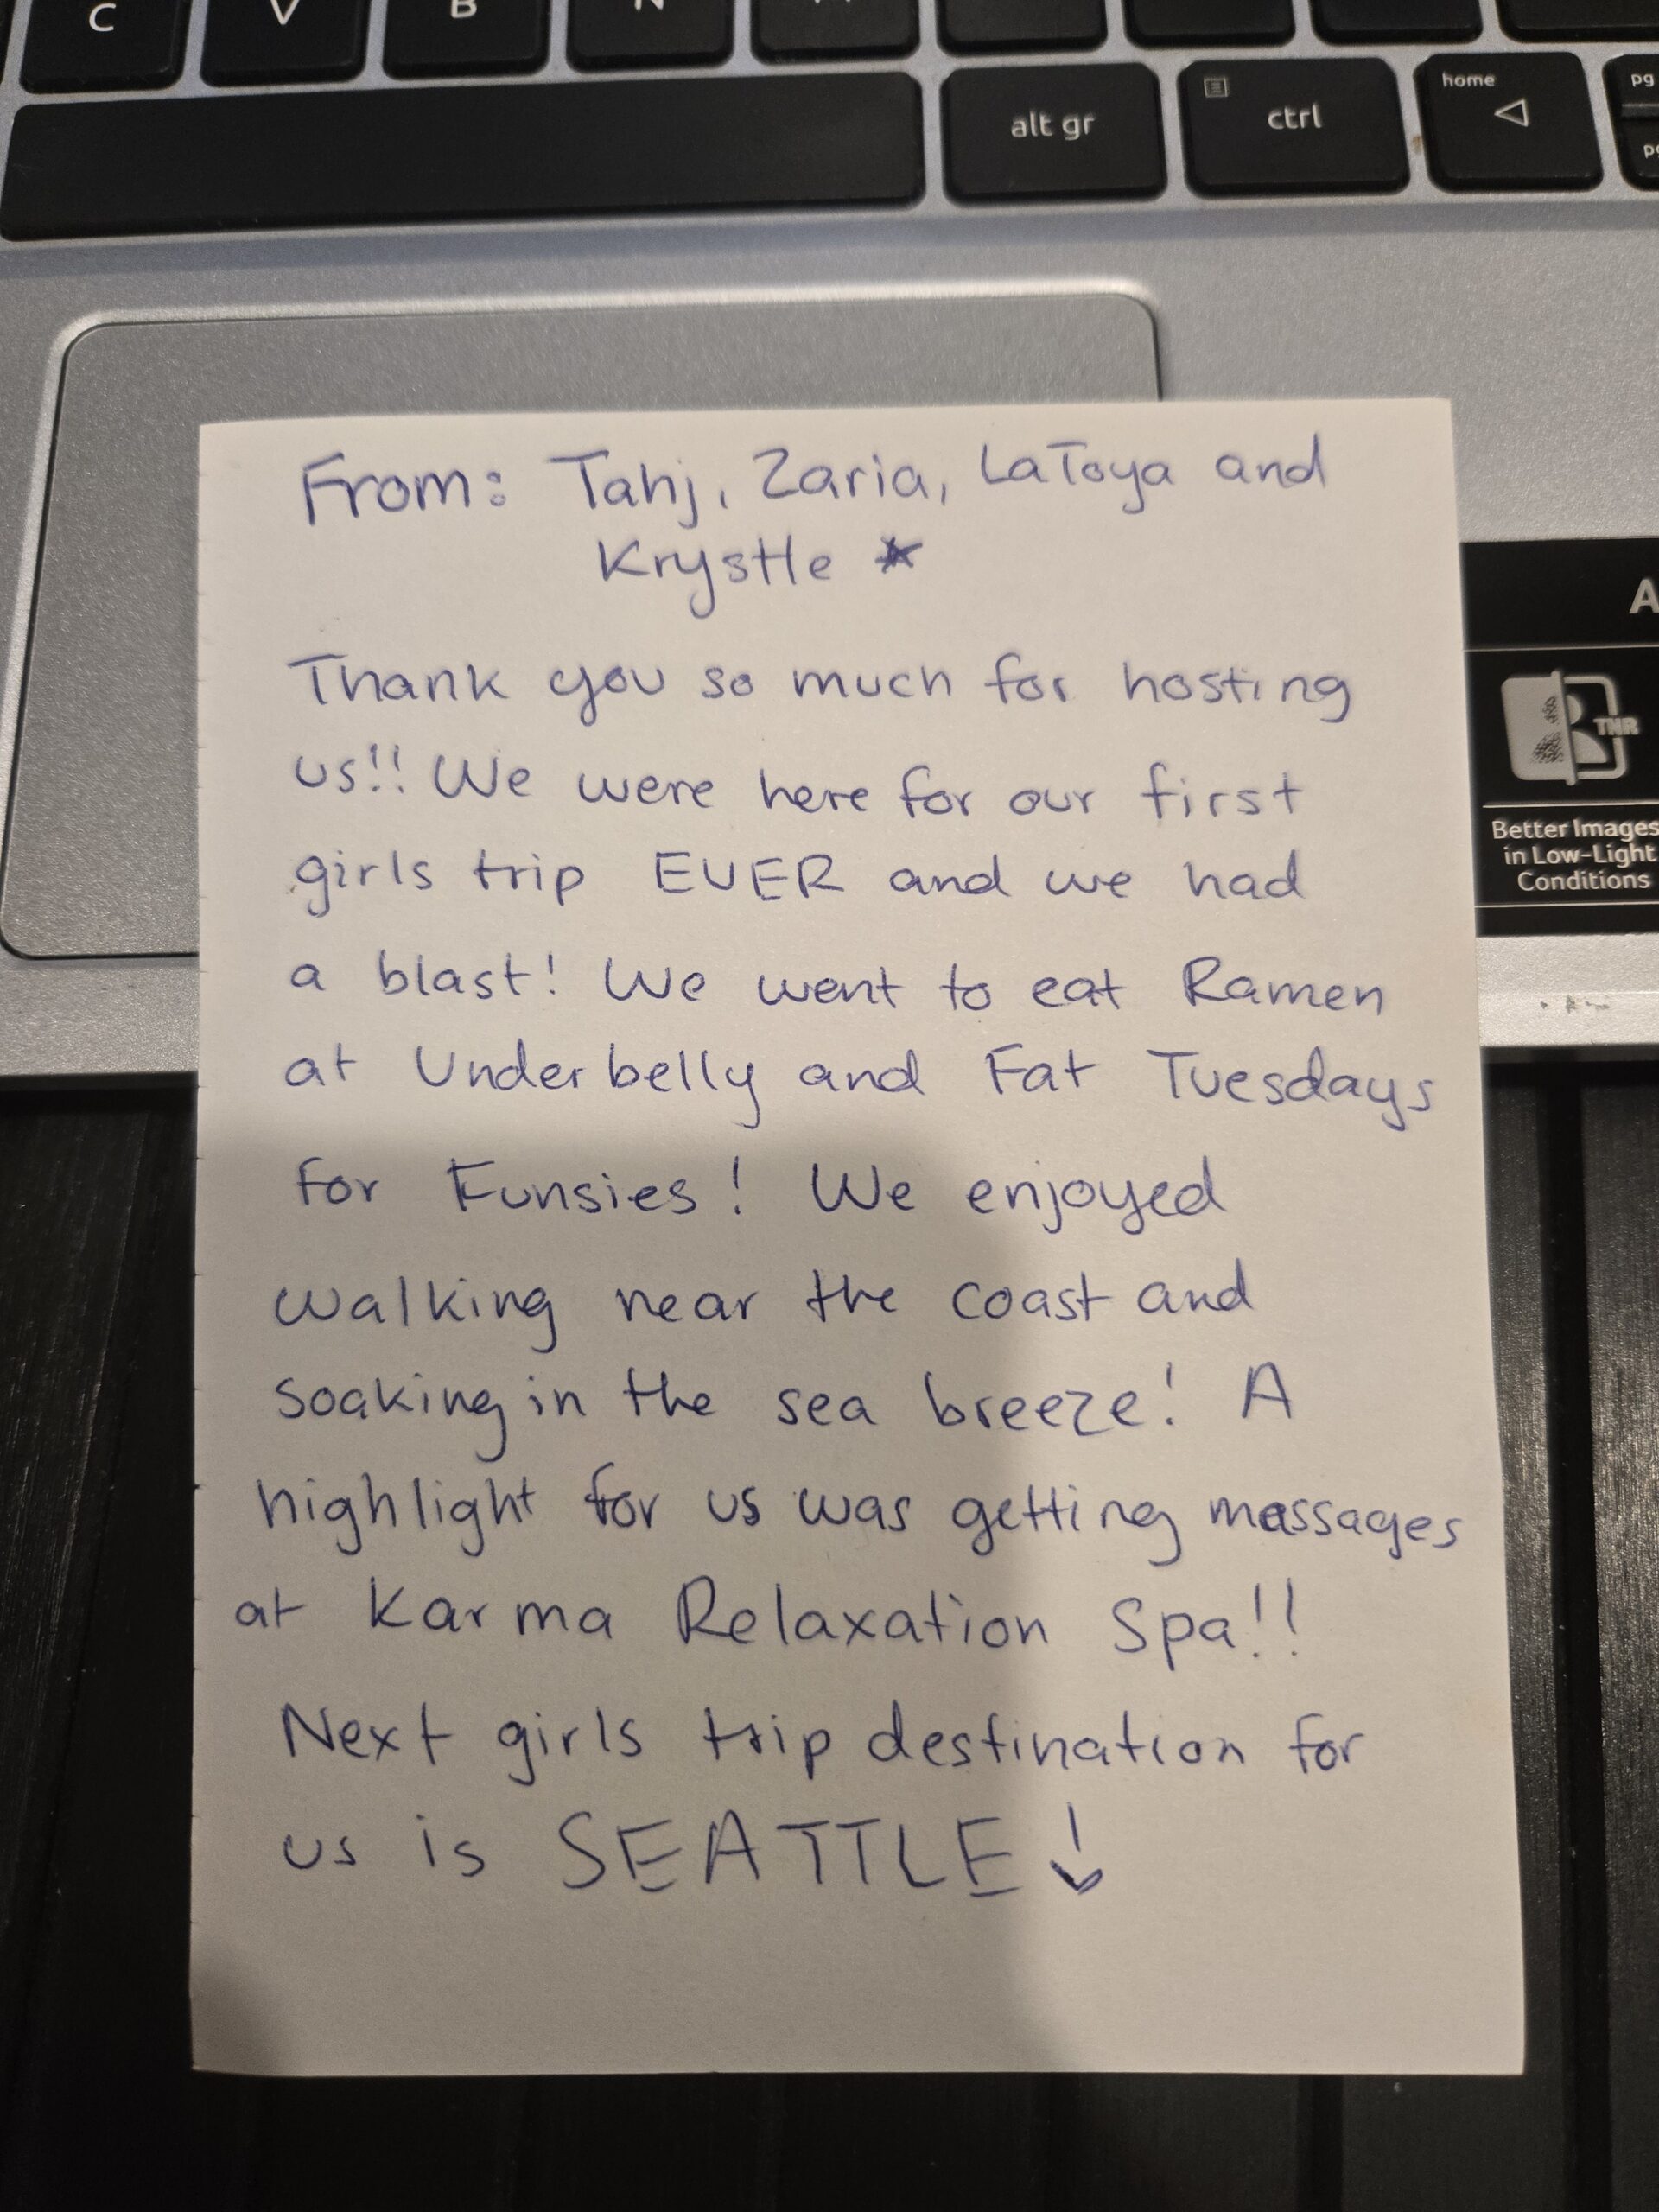 C V B N
alt gr ctrl home pg
From: Tahj, Zaria, LaToya and
Krystle
Thank you so much for hosting
us!! We were here for our first
girls trip EVER and we had
a blast! We went to eat Ramen
at Underbelly and Fat Tuesdays
for Funsies! We enjoyed
walking near the coast and
soaking in the sea breeze! A
highlight for us was getting massages
at Karma Relaxation Spa!!
Next girls trip destination for
us is SEATTLE!
A
TNR
Better Images
in Low-Light
Conditions